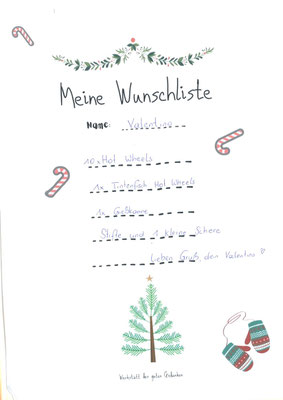 Meine Wunschliste
Name: Valentino
10x Hot Wheels
1x Tintenfaß Hot Wheels
1x Gießkanne
Stifte und 1 kleine Schere
Lieben Gruß, dein Valentino ♡
Werkstatt der guten Gedanken